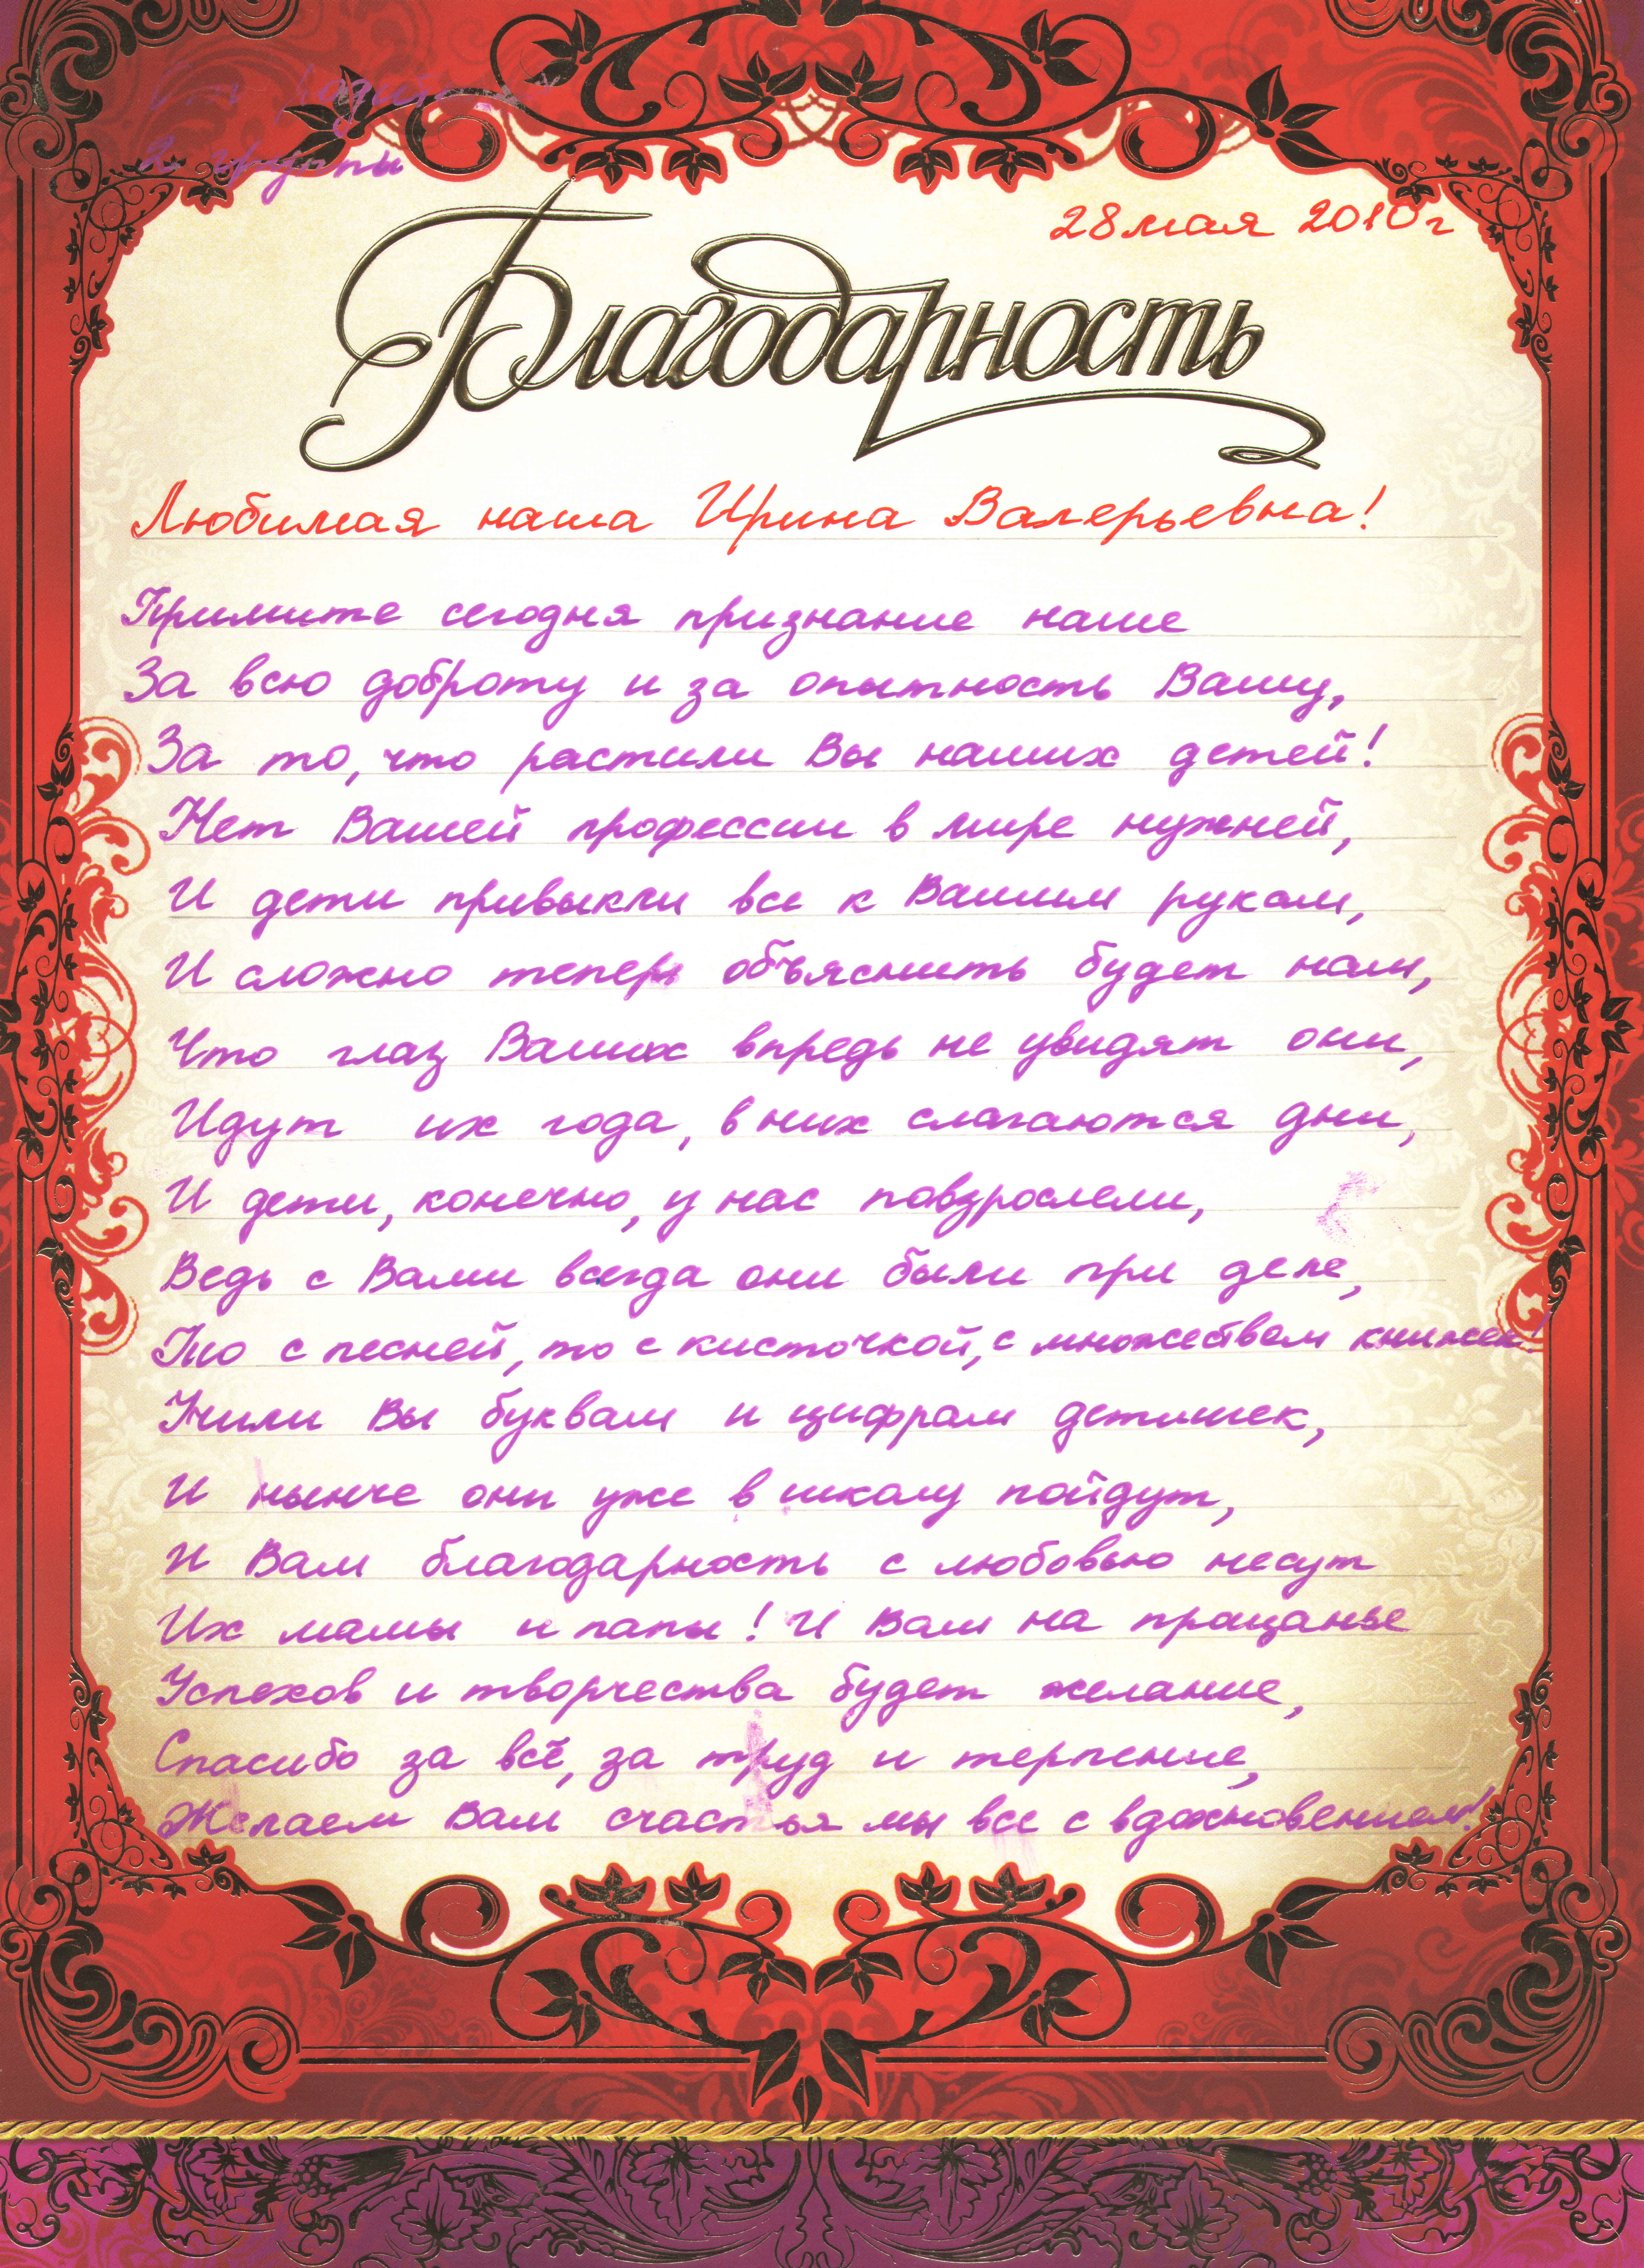 От родителей
2 группы
28 мая 2010 г
Благодарность
Любимая наша Ирина Валерьевна!
Примите сегодня признание наше
За всю доброту и за опытность Вашу,
За то, что растили Вы наших детей!
Нет Вашей профессии в мире нужней,
И дети привыкли все к Вашим рукам,
И сложно теперь объяснить будет нам,
Что глаз Ваших впредь не увидят они,
Идут их года, в них слагаются дни,
И дети, конечно, у нас повзрослели,
Ведь с Вами всегда они были при деле,
То с песней, то с кисточкой, с множеством книжек!
Учили Вы буквам и цифрам детишек,
И нынче они уже в школу пойдут,
И Вам благодарность с любовью несут
Их мамы и папы! И Вам на прощанье
Успехов и творчества будет желание,
Спасибо за всё, за труд и терпение,
Желаем Вам счастья мы все с вдохновением!